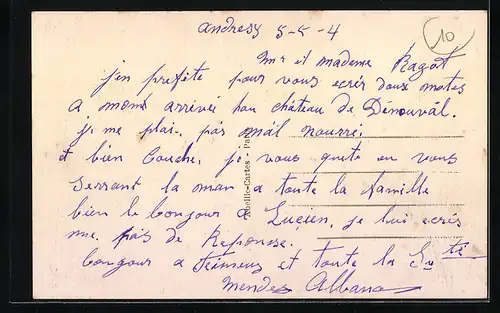 andresy 5-5-4
10
Mr et madame Ragot
j'en profite pour vous ecrir doux motes
a moms arrivée hau château de Dénouval.
je me plai. pas mâl nourri.
et bien Couche. je vous quite en vous
serrant la man a toute la famille
bien le bonjour a Lucien, je lui ecris
me pas de Reponse.
bonjour a et toute la
Mendes Albano
Abeille-Cartes - Pa